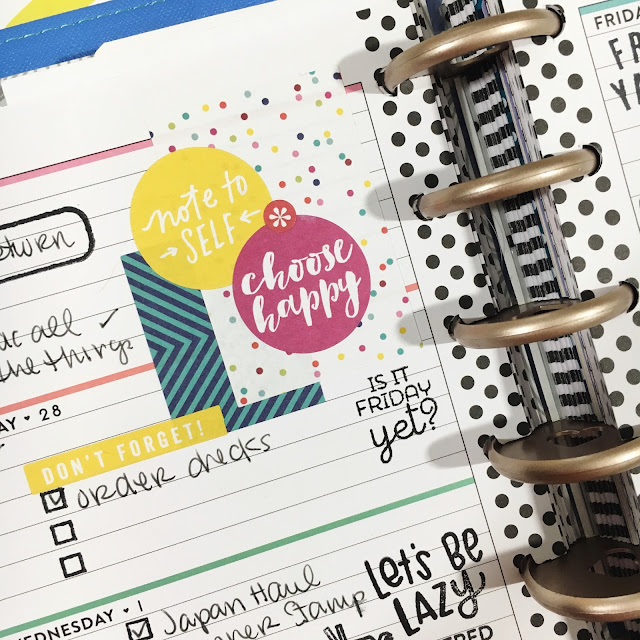 eturn
all ✓
the things
note to
SELF
choose
happy
AY ♥ 28
DON'T FORGET!
order checks
IS IT
FRIDAY
yet?
WEDNESDAY ♥ 1
Japan Haul
Stamp
Let's Be
LAZY
FRIDA
FR
YA